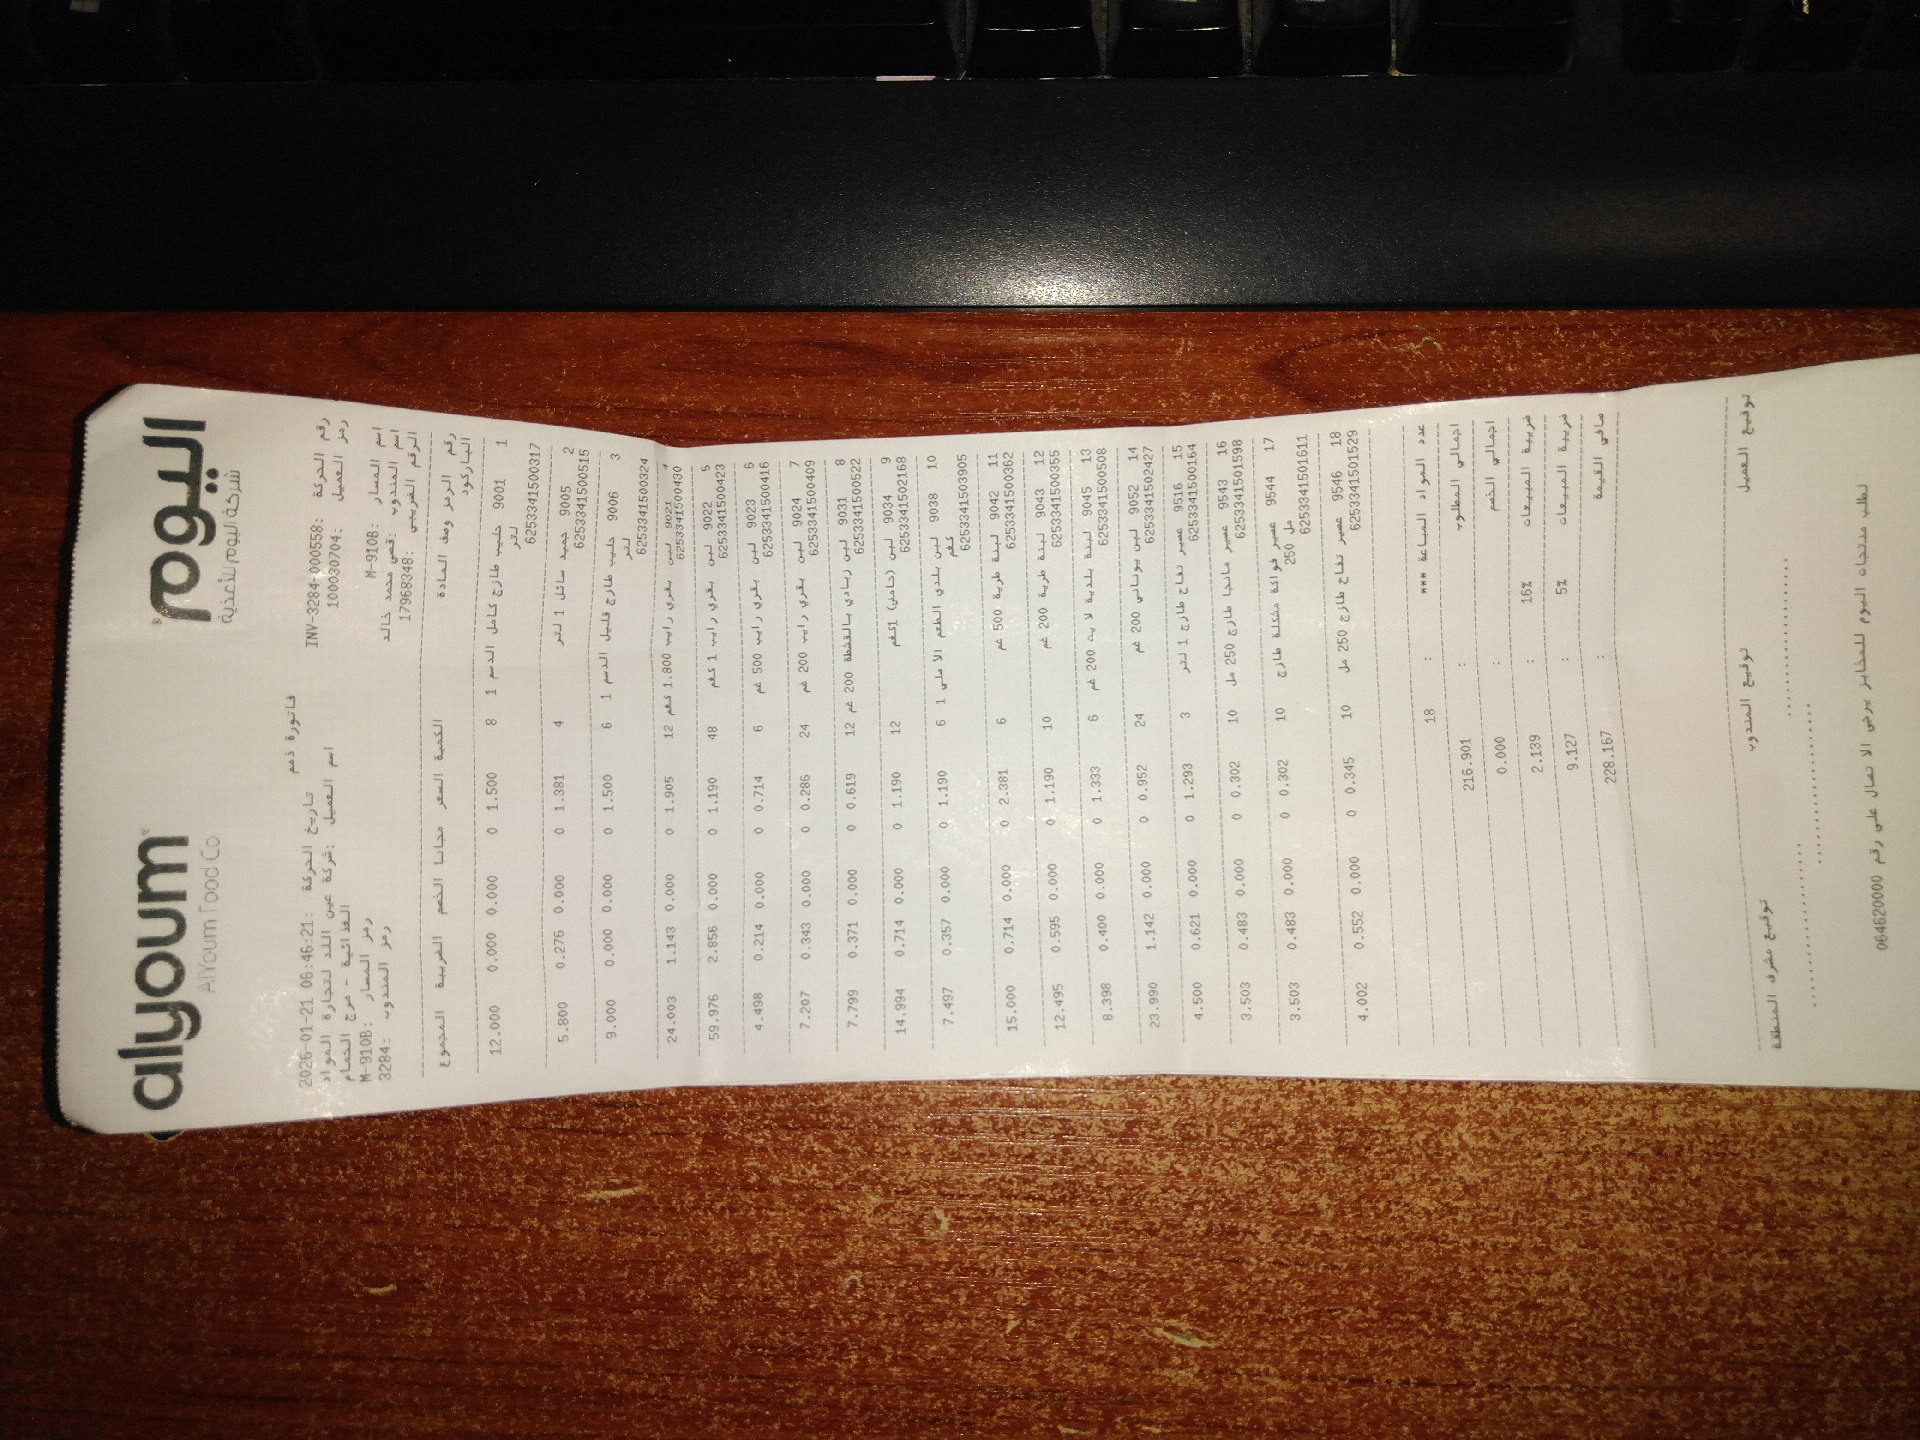 alyoum
AlYoum Food Co
اليوم
شركة اليوم للأغذية
فاتورة ذمم
رقم الحركة: INV-3284-000558 تاريخ الحركة: 2026-01-21 06:46:21
رمز العميل: 100030704 اسم العميل: شركة عين اللد لتجارة المواد
الغذائية - مرج الحمام
اسم المسار: M-910B رمز المسار: M-910B
اسم المندوب: قصي محمد خالد رمز المندوب: 3284
الرقم الضريبي: 17968348
رقم الرمز وصف المادة الكمية السعر مجانا الخصم الضريبة المجموع
الباركود
1 9001 حليب طازج كامل الدسم 1 8 1.500 0 0.000 0.000 12.000
لتر
6253341500317
2 9005 جميد سائل 1 لتر 4 1.381 0 0.000 0.276 5.800
6253341500515
3 9006 حليب طازج قليل الدسم 1 6 1.500 0 0.000 0.000 9.000
لتر
6253341500324
4 9021 لبن بقري رايب 1.800 كغم 12 1.905 0 0.000 1.143 24.003
6253341500430
5 9022 لبن بقري رايب 1 كغم 48 1.190 0 0.000 2.856 59.976
6253341500423
6 9023 لبن بقري رايب 500 غم 6 0.714 0 0.000 0.214 4.498
6253341500416
7 9024 لبن بقري رايب 200 غم 24 0.286 0 0.000 0.343 7.207
6253341500409
8 9031 لبن زبادي بالقشطة 200 غم 12 0.619 0 0.000 0.371 7.799
6253341500522
9 9034 لبن (حامض) 1كغم 12 1.190 0 0.000 0.714 14.994
6253341502168
10 9038 لبن بلدي الطعم الاصلي 1 6 1.190 0 0.000 0.357 7.497
كغم
6253341503905
11 9042 لبنة طرية 500 غم 6 2.381 0 0.000 0.714 15.000
6253341500362
12 9043 لبنة طرية 200 غم 10 1.190 0 0.000 0.595 12.495
6253341500355
13 9045 لبنة بلدية لايت 200 غم 6 1.333 0 0.000 0.400 8.398
6253341500508
14 9052 لبن يوناني 200 غم 24 0.952 0 0.000 1.142 23.990
6253341502427
15 9516 عصير تفاح طازج 1 لتر 3 1.293 0 0.000 0.621 4.500
6253341500164
16 9543 عصير مانجا طازج 250 مل 10 0.302 0 0.000 0.483 3.503
6253341501598
17 9544 عصير فواكة مشكلة طازج 10 0.302 0 0.000 0.483 3.503
250 مل
6253341501611
18 9546 عصير تفاح طازج 250 مل 10 0.345 0 0.000 0.552 4.002
6253341501529
عدد المواد المباعة *** : 18
اجمالي المطلوب : 216.901
اجمالي الخصم : 0.000
ضريبة المبيعات 16% : 2.139
ضريبة المبيعات 5% : 9.127
صافي القيمة : 228.167
توقيع العميل توقيع المندوب توقيع مشرف المنطقة
لطلب منتجات اليوم للمخابز يرجى الاتصال على رقم 064620000